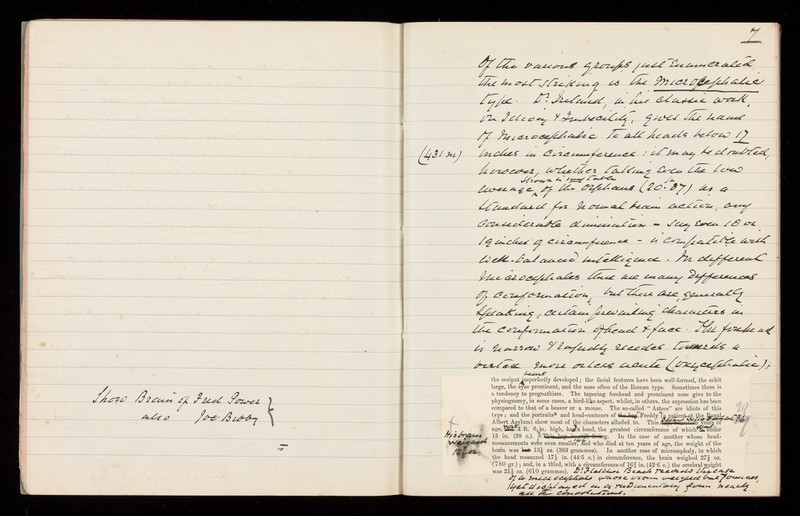 Show Brain of Fred Power
also Joe Busby
7
Of the various groups just enumerated
the most striking is the Microcephalic
type. Dr. Ireland, in his classic work
on Idiocy & Imbecility, gives the name
of Microcephalic to all heads below 17
(431.m)
inches in circumference: it may be doubted,
however, whether taking even the low
shown in
average of the orphans (20.37) as a
standard for normal brain action, any
considerable diminution - say even 18 or
19 inches of circumference - is compatible with
well-balanced intelligence. In different
Microcephales there are many differences
of conformation, but there are, generally
speaking, certain prevailing characters in
the conformation of head & face. The forehead
is narrow & rapidly recedes towards a
vertex more or less acute (oxycephalic);
being
the occiput imperfectly developed; the facial features have been well-formed, the orbit
large, the eyes prominent, and the nose often of the Roman type. Sometimes there is
a tendency to prognathism. The tapering forehead and prominent nose give to the
physiognomy, in some cases, a bird-like aspect, whilst, in others, the expression has been
compared to that of a beaver or a mouse. The so-called "Aztecs" are idiots of this
type; and the portraits and head-contours of Freddy (a patient at the Royal
Albert Asylum) show most of the characters alluded to. This years of
age, 4 ft. 6 in. high, had a head, the greatest circumference of which is under
15 in. (38 c.). In the case of another whose head-
His brain
weighed
measurements were even smaller, and who died at ten years of age, the weight of the
brain was 13½ oz. (383 grammes). In another case of microcephaly, in which
the head measured 17½ in. (44·5 c.) in circumference, the brain weighed 27½ oz.
(780 gr.); and, in a third, with a circumference of 16¾ in. (42·6 c.) the cerebral weight
was 21½ oz. (610 grammes). Dr. Fletcher Beach records the case
of a microcephale whose brain weighed but 7 ounces,
yet displayed in a rudimentary form nearly
all the convolutions.